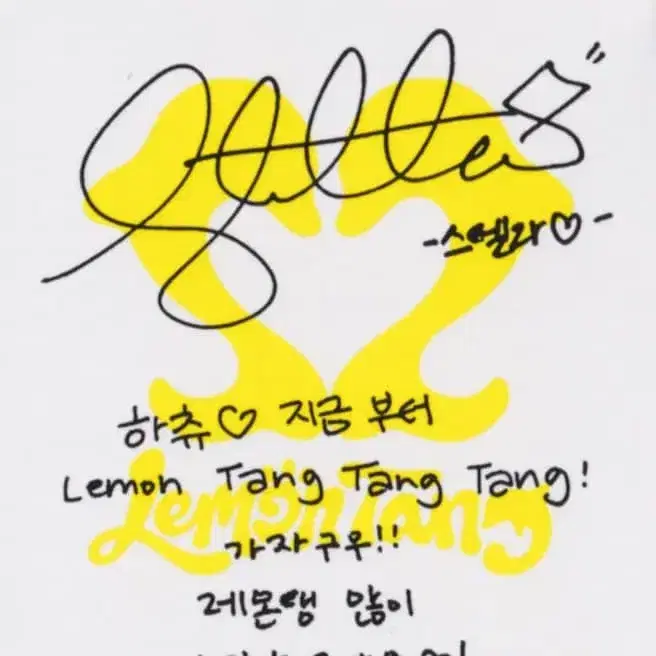 Stella
-스텔라♡-
하츄♡ 지금 부터
Lemon Tang Tang Tang!
LemonTang
가자구우!!
레몬탱 많이